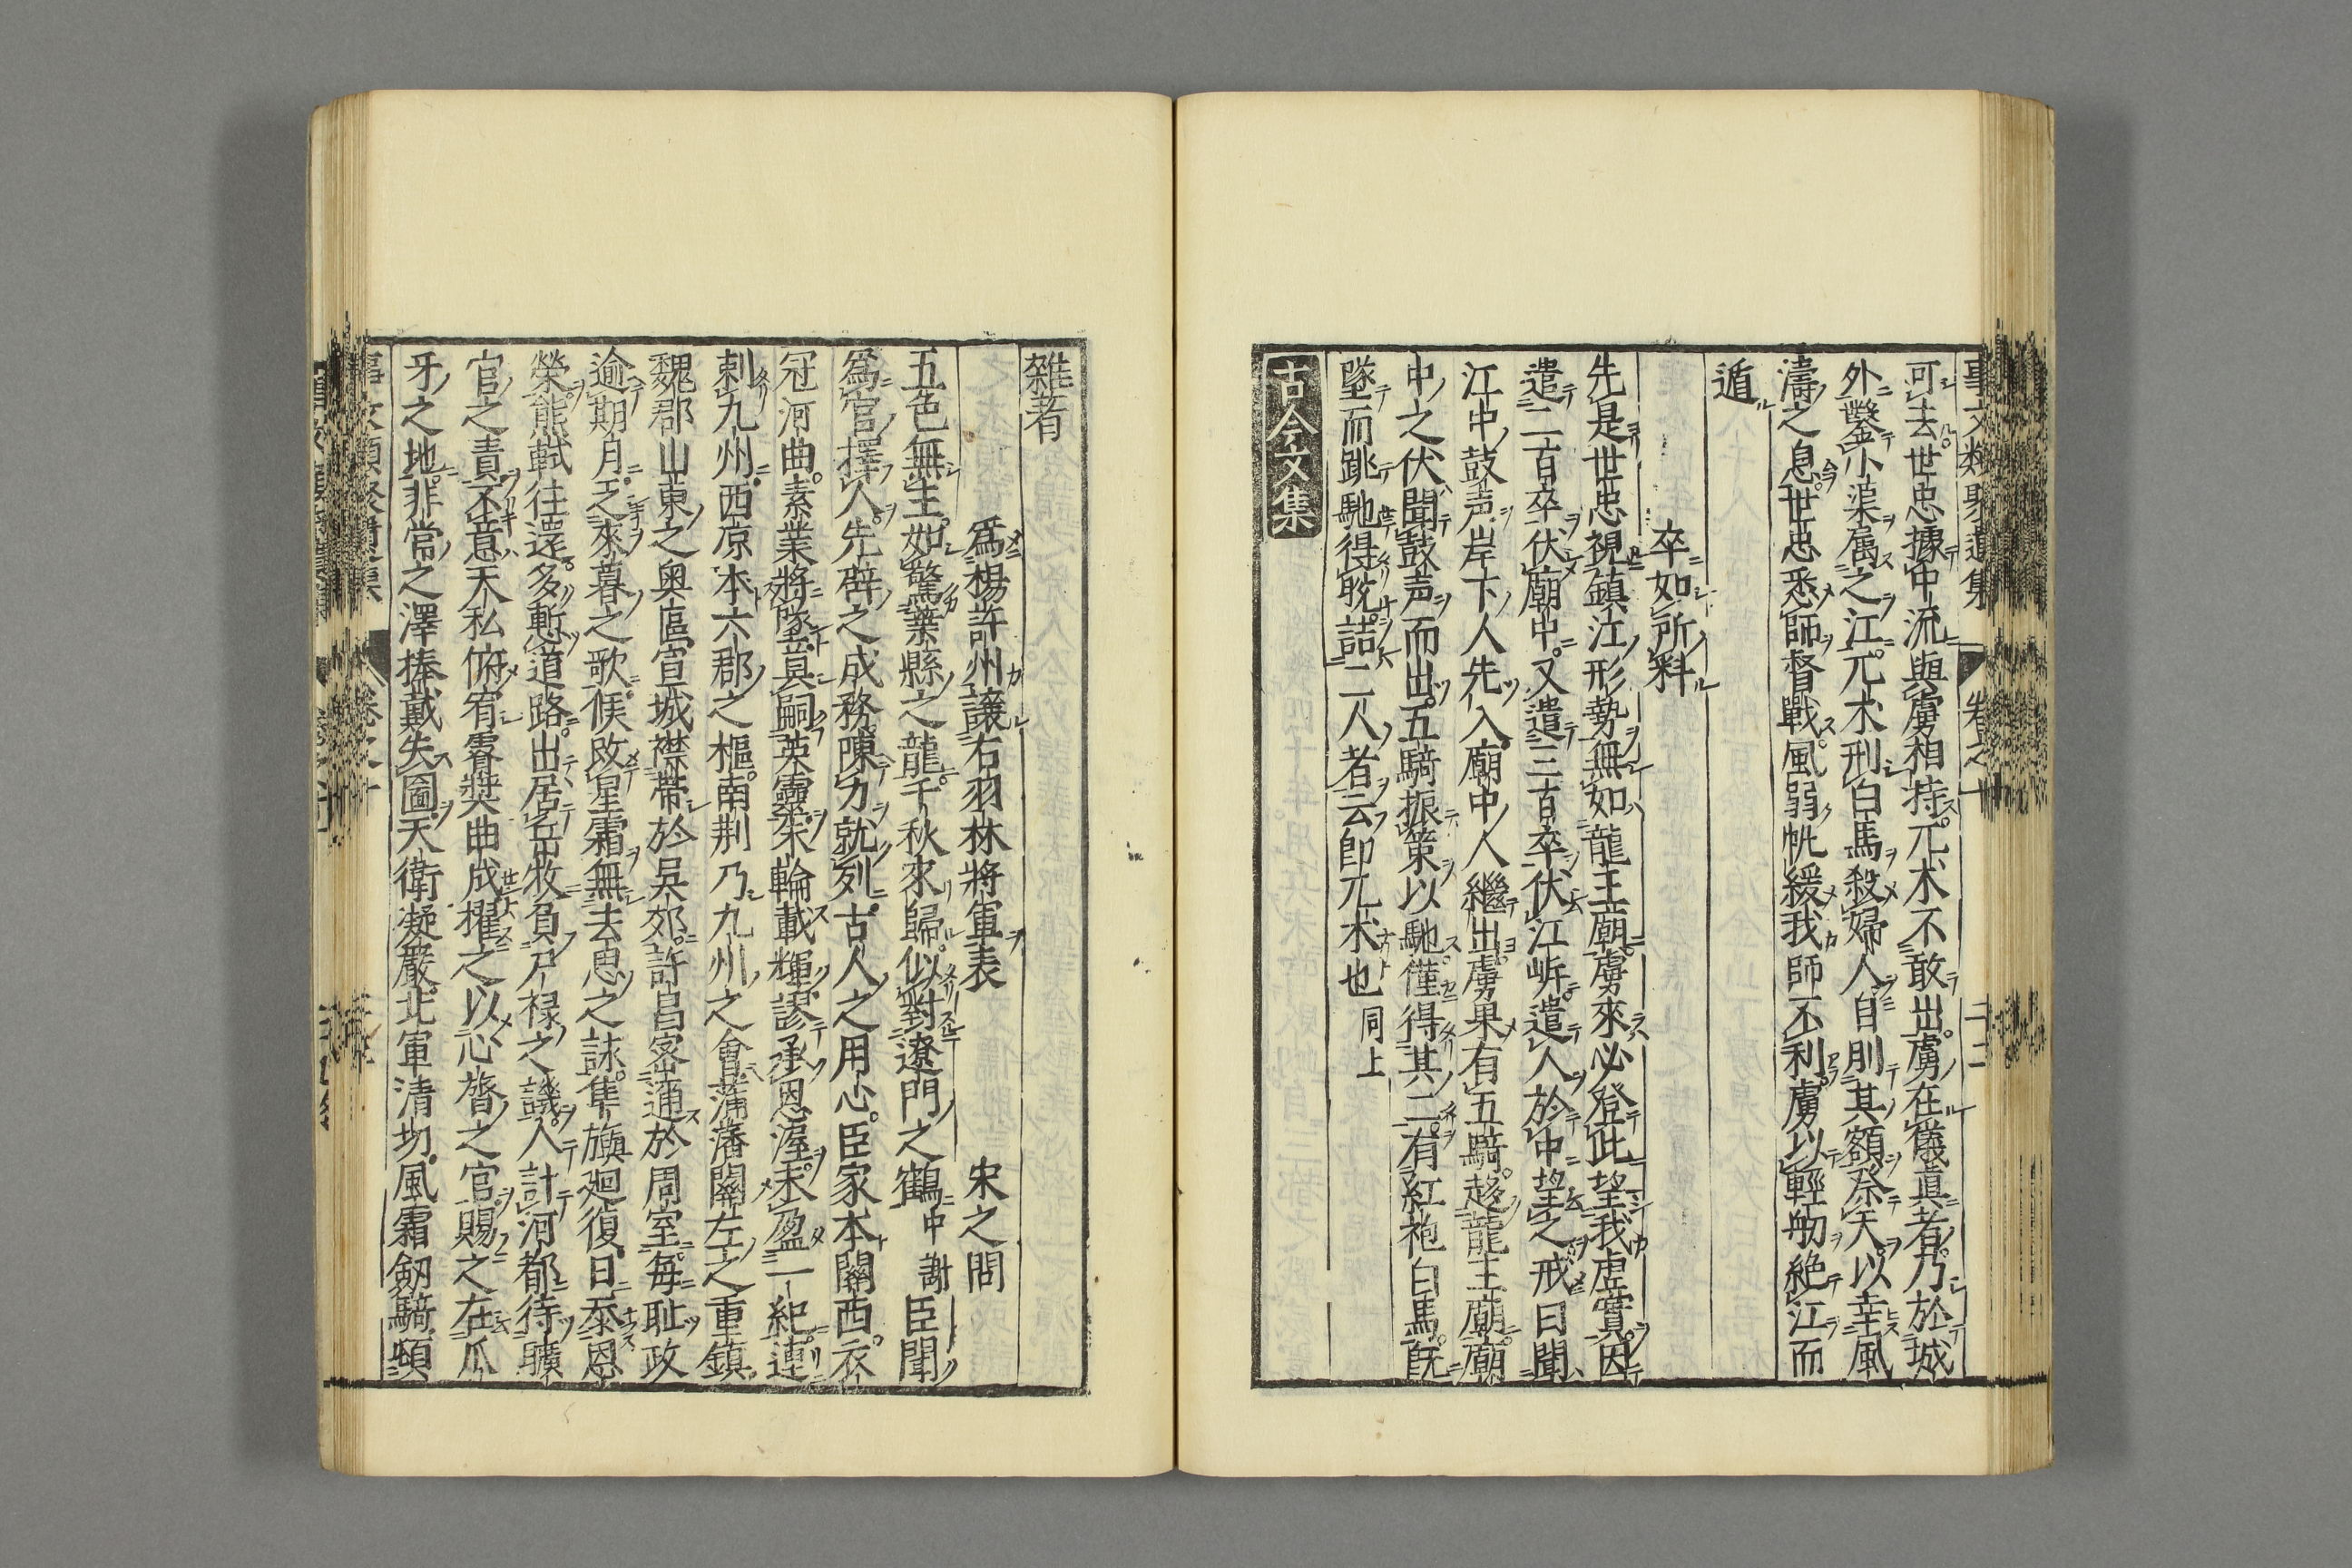 事文類聚遺集 卷之十 二十二
可去世忠據中流與虜相持兀朮不敢出虜在儀真者乃於城
外鑿小渠属之江兀朮刑白馬殺婦人自刖其額祭天以幸風
濤之息世忠悉師督戰風弱帆緩我師不利虜以輕舠絶江而
遁
卒如所料
先是世忠視鎮江形勢無如龍王廟虜來必登此望我虚實因
遣二百卒伏廟中又遣二百卒伏江岍遣人於中望之戒曰聞
江中鼓声岸下人先入廟中人繼出虜果有五騎趍龍王廟廟
中之伏聞鼓声而出五騎振策以馳僅得其二有紅袍白馬既
墜而跳馳得脱詰二人者云即兀朮也 同上
古今文集
雜著
為楊許州讓右羽林將軍表 宋之問
五色無主如驚葉縣之龍千秋來歸似對遼門之鶴 中謝 臣聞
為官擇人先辟之成務陳力就列古人之用心臣家本關西衣
冠河曲素業將墜冥嗣英靈朱輪載輝謬承恩渥未盈一紀連
刺九州西凉本六郡之樞南荆乃九州之會蒲藩關左之重鎮
魏郡山東之奥區宣城襟帯於吴郊許昌密通於周室毎耻政
逾期月乏來暮之歌候改星霜無去思之詠隼旟廻復日忝恩
榮熊軾往還多慙道路出居岳牧負尸禄之譏入計河都待曠
官之責不意天私俯宥睿奬曲成擢之以心膂之官賜之在爪
牙之地非常之澤捧戴失圖天衛凝嚴北軍清切風霜劒騎頓